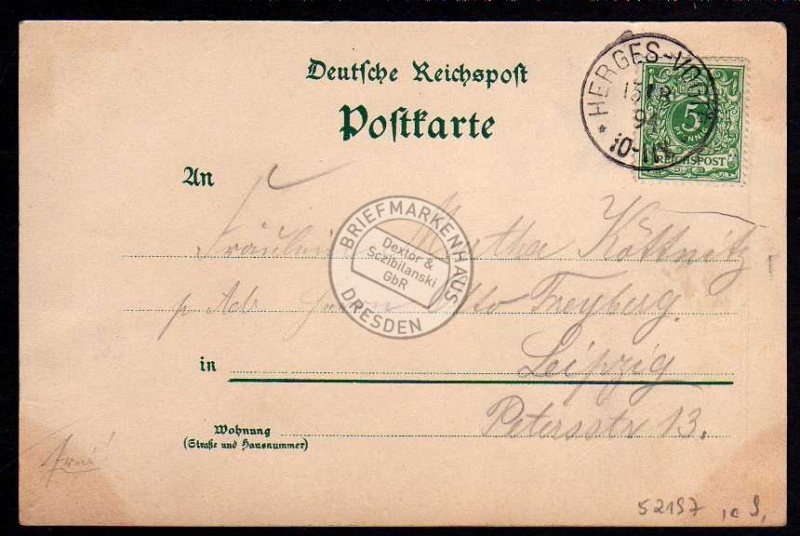 Deutsche Reichspost
Postkarte
HERGES-VOGT
13 8
94
10-11
5
PFENNIG
REICHSPOST
An
Fräulein Martha Köttnitz
p Adr Herrn Otto Freyberg.
in Leipzig
Wohnung
(Straße und Hausnummer)
Petersstr 13.
Frei!
52197
BRIEFMARKENHAUS
Dextor &
Sczibilanski
GbR
DRESDEN